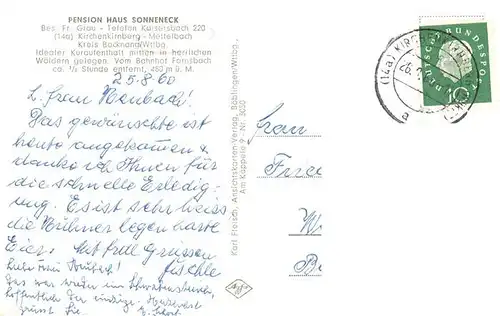 PENSION HAUS SONNENECK
Bes. Fr. Grau - Telefon Kaisersbach 220
(14a) Kirchenkirnberg - Mettelbach
Kreis Backnang/Wttbg.
Idealer Kuraufenthalt mitten in herrlichen
Wäldern gelegen. Vom Bahnhof Fornsbach
ca. ½ Stunde entfernt, 450 m ü. M.
25.8.60
L. Frau Neubach!
Das gewünschte ist
heute angekommen u
danke ich Ihnen für
die schnelle Erledig-
ung. Es ist sehr heiss
die Hühner legen harte
Eier. Mit frdl Grüssen
Füschle
Liebe Frau
Das war wieder ein
hoffentlich der einzige.
grüsst Sie
Karl Fleisch, Ansichtskarten-Verlag, Böblingen/Wttbg.,
Am Käppele 9 - Nr. 3030
Agfa
Frau
DEUTSCHE BUNDESPOST
10
(14a) KIRCHENKIRNBERG
a